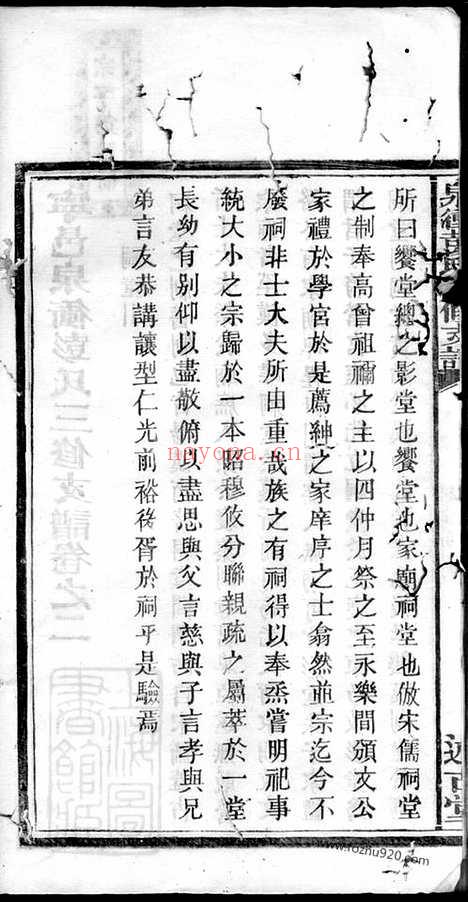 所曰饗堂總之影堂也饗堂也家廟祠堂也倣宋儒祠堂
之制奉高曾祖禰之主以四仲月祭之至永樂間頒文公
家禮於學官於是薦紳之家庠序之士翕然並宗迄今不
廢祠非士大夫所由重哉族之有祠得以奉烝嘗明祀事
統大小之宗歸於一本昭穆攸分聯親疏之屬萃於一堂
長幼有别仰以盡敬俯以盡思與父言慈與子言孝與兄
弟言友恭講讓型仁光前裕後胥於祠乎是驗焉
寧邑泉衝彭氏三修支譜卷之二
nayona.cn
www.rozhu920.com